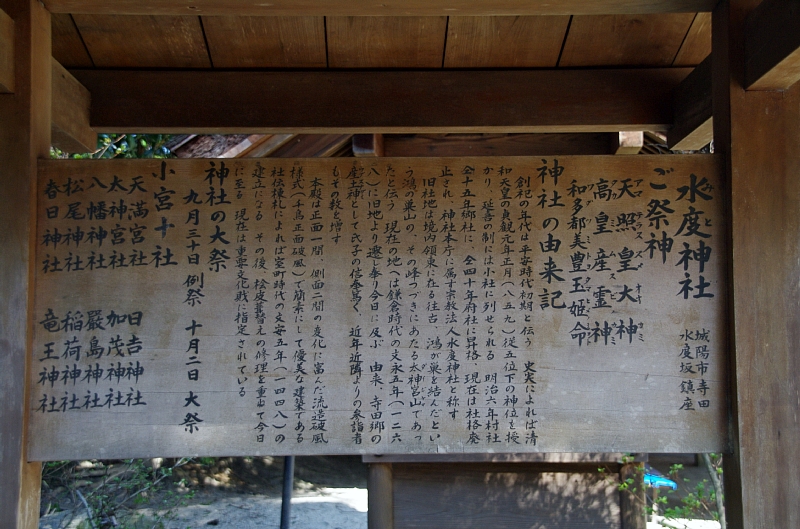 水度神社
みと
城陽市寺田
水度坂 鎮座
ご祭神
天照皇大神
アマテラススメオオカミ
高皇産霊神
和多都美豊玉姫命
神社の由来記
創祀の年代は平安時代初期と伝う 史実によれば清
和天皇の貞観元年正月(八五九)従五位下の神位を授
かり、延喜の制には小社に列せられる 明治六年村社
全十五年郷社に、全四十年府社に昇格 現在は社格廃
止され、神社本庁に属す宗教法人水度神社と称す
旧社地は境内領東に在る往古、鴻が巣を結んだとい
う鴻の巣山の、その峰つづきにあたる太神宮山であっ
たと伝う 現在の地へは鎌倉時代の文永五年(一二六
八)に旧地より遷し奉り今日に及ぶ 由来、寺田郷の
産土神として氏子の信奉篤く 近年近隣よりの参詣者
もその数を増す
本殿は正面一間、側面二間の変化に富んだ流造破風
様式(千鳥正面破風)で簡素にして優美な建築である
社伝後札によれば室町時代の文安五年(一四四八)の
建立になる その後、桧皮葺替えの修理を重ねて今日
に至る 現在は重要文化財に指定されている
神社の大祭
九月三十日 例祭 十月二日 大祭
小宮十社
天満宮社 日吉神社
太神宮社 加茂神社
八幡神社 厳島神社
松尾神社 稲荷神社
春日神社 竜王神社